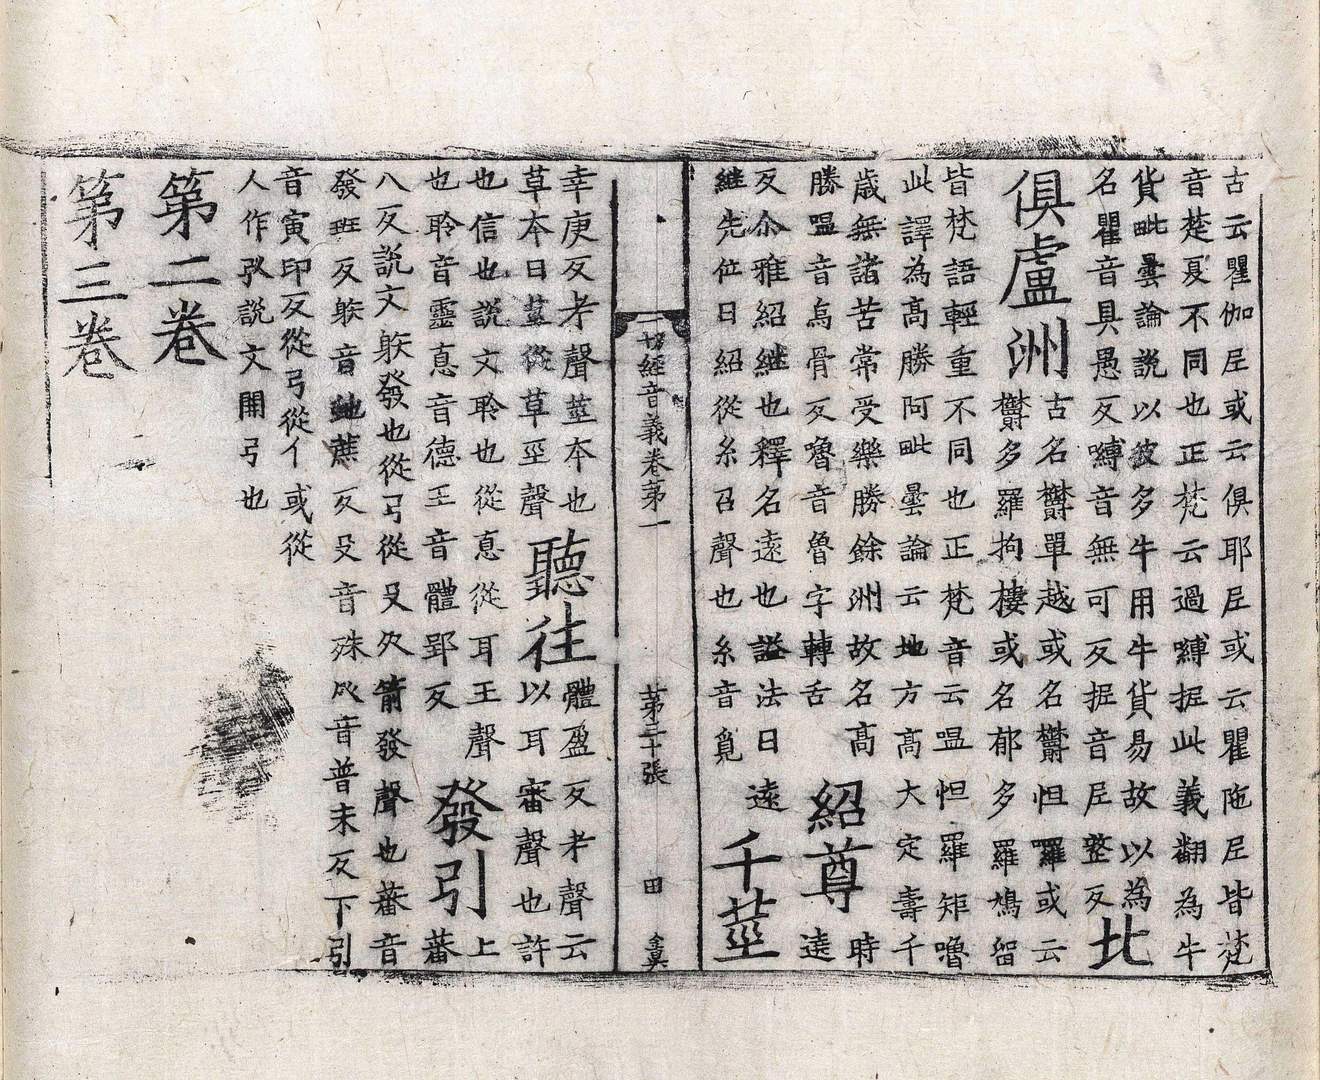 古云瞿伽尼或云俱耶尼或云瞿陁尼皆梵
音楚夏不同也正梵云過嚩抳此義翻為牛
貨毗曇論說以彼多牛用牛貨易故以為
名瞿音具愚反嚩音無可反抳音尼整反北
俱盧洲古名欝單越或名欝怛羅或云
欝多羅拘樓或名郁多羅鳩留
皆梵語輕重不同也正梵音云嗢怛羅矩嚕
此譯為高勝阿毗曇論云地方高大定壽千
歲無諸苦常受樂勝餘洲故名高
勝嗢音烏骨反嚕音魯字轉舌紹尊時
遶
反尒雅紹繼也釋名遠也謚法曰遠
繼先位曰紹從糸召聲也糸音覓千莖
一切經音義卷第一 第三十張 田
幸庚反考聲莖本也聽往體盈反考聲云
草本曰莖從草巠聲以耳審聲也許
也信也說文聆也從悳從耳王聲發引上
也聆音靈悳音德王音體郢反蕃
發班反躲音虵蔗反殳音殊癶音普末反下引
八反說文躲發也從弓從殳癶箭發聲也蕃音
音寅印反從弓從亻或從
人作㧈說文開弓也
第二卷
第三卷